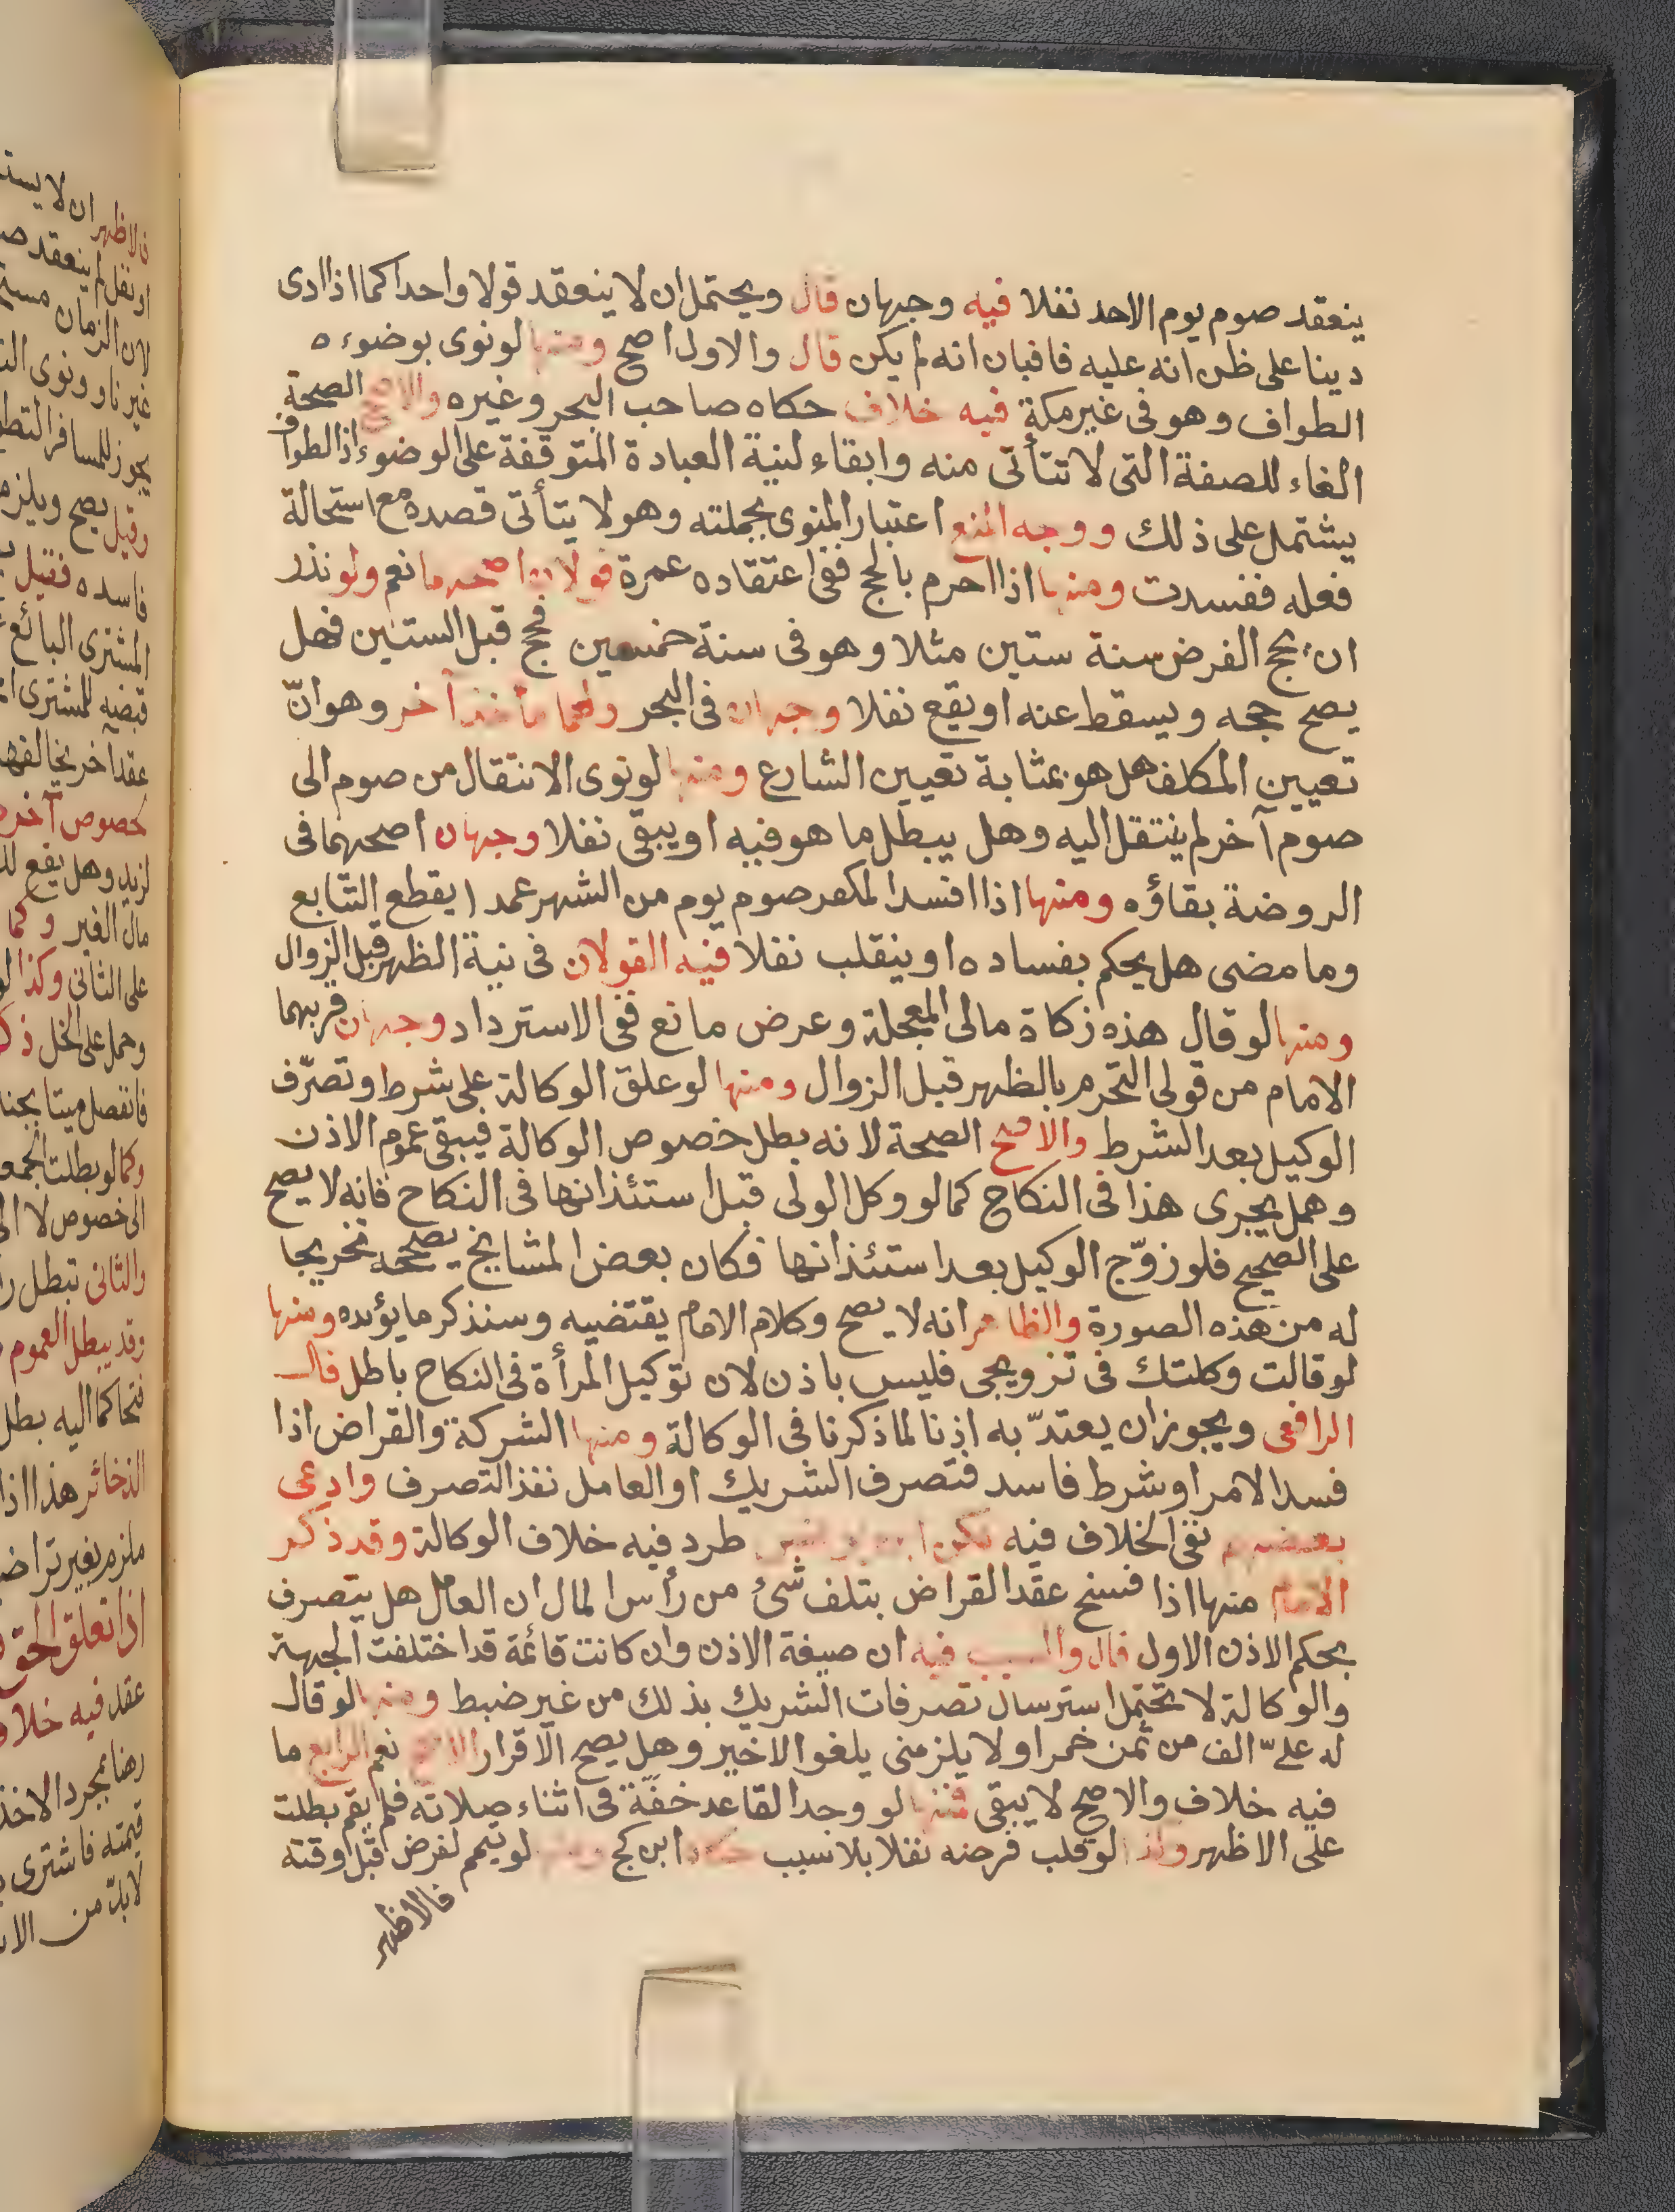 ينعقد صوم يوم الاحد نفلا فيه وجهان قال ويحتمل ان لا ينعقد قولا واحدا كما اذا ادى
دينا على ظن انه عليه فافبان انه لم يكن قال والاول اصح ومنها لو نوى بوضوءه
الطواف وهو في غير مكة فيه خلاف حكاه صاحب البحر وغيره والاصح الصحة
الغاء للصفة التي لا تتأتى منه وابقاء لنية العبادة المتوقفة على الوضوء اذ الطواف
يشتمل على ذلك ووجه المنع اعتبار المنوى بجملته وهو لا يتأتى قصده مع استحالة
فعله ففسدت ومنها اذا احرم بالحج ففي اعتقاده عمرة قولان اصحهما نعم ولو نذر
ان يحج الفرض سنة ستين مثلا وهو في سنة خمسين فحج قبل الستين فهل
يصح حجه ويسقط عنه او يقع نفلا وجهان في البحر ولهما مأخذ آخر وهو انّ
تعيين المكلف هل هو بمثابة تعيين الشارع ومنها لو نوى الانتقال من صوم الى
صوم آخر لم ينتقل اليه وهل يبطل ما هو فيه او يبقى نفلا وجهان اصحهما في
الروضة بقاؤه ومنها اذا افسد المكفر صوم يوم من الشهر عمدا يقطع التتابع
وما مضى هل يحكم بفساده او ينقلب نفلا فيه القولان في نية الظهر قبل الزوال
ومنها لو قال هذه زكاة مالى المعجلة وعرض مانع ففي الاسترداد وجهان قربهما
الامام من قولى التحرم بالظهر قبل الزوال ومنها لو علق الوكالة على شرط وتصرّف
الوكيل بعد الشرط والاصح الصحة لانه بطل خصوص الوكالة فيبقى عموم الاذن
وهل يجرى هذا في النكاح كما لو وكل الولى قبل استئذانها في النكاح فانه لا يصح
على الصحيح فلو زوّج الوكيل بعد استئذانها فكان بعض المشايخ يصححه تخريجا
له من هذه الصورة والظاهر انه لا يصح وكلام الامام يقتضيه وسنذكر ما يؤيده ومنها
لو قالت وكلتك في تزويجى فليس باذن لان توكيل المرأة في النكاح باطل قال
الرافعى ويجوز ان يعتدّ به اذنا لما ذكرنا في الوكالة ومنها الشركة والقراض اذا
فسد الامر او شرط فاسد فتصرف الشريك او العامل نفذ التصرف وادعى
بعضهم نفى الخلاف فيه لكن طرد فيه خلاف الوكالة وقد ذكر
الامام منها اذا فسخ عقد القراض بتلف شئ من رأس المال ان العامل هل يتصرف
بحكم الاذن الاول قال والسبب فيه ان صيغة الاذن وان كانت قائمة قد اختلفت الجهة
والوكالة لا تحتمل استرسال تصرفات الشريك بذلك من غير ضبط ومنها لو قال
له علىّ الف من ثمن خمر او لا يلزمنى يلغو الاخير وهل يصح الاقرار الاصح نعم الرابع ما
فيه خلاف والاصح لا يبقى فمنها لو وجد القاعد خفّة في اثناء صلاته فلم يقم بطلت
على الاظهر وكذا لو قلب فرضه نفلا بلا سبب حكاه ابن كج ومنها لو تيمم لفرض قبل وقته
فالاظهر